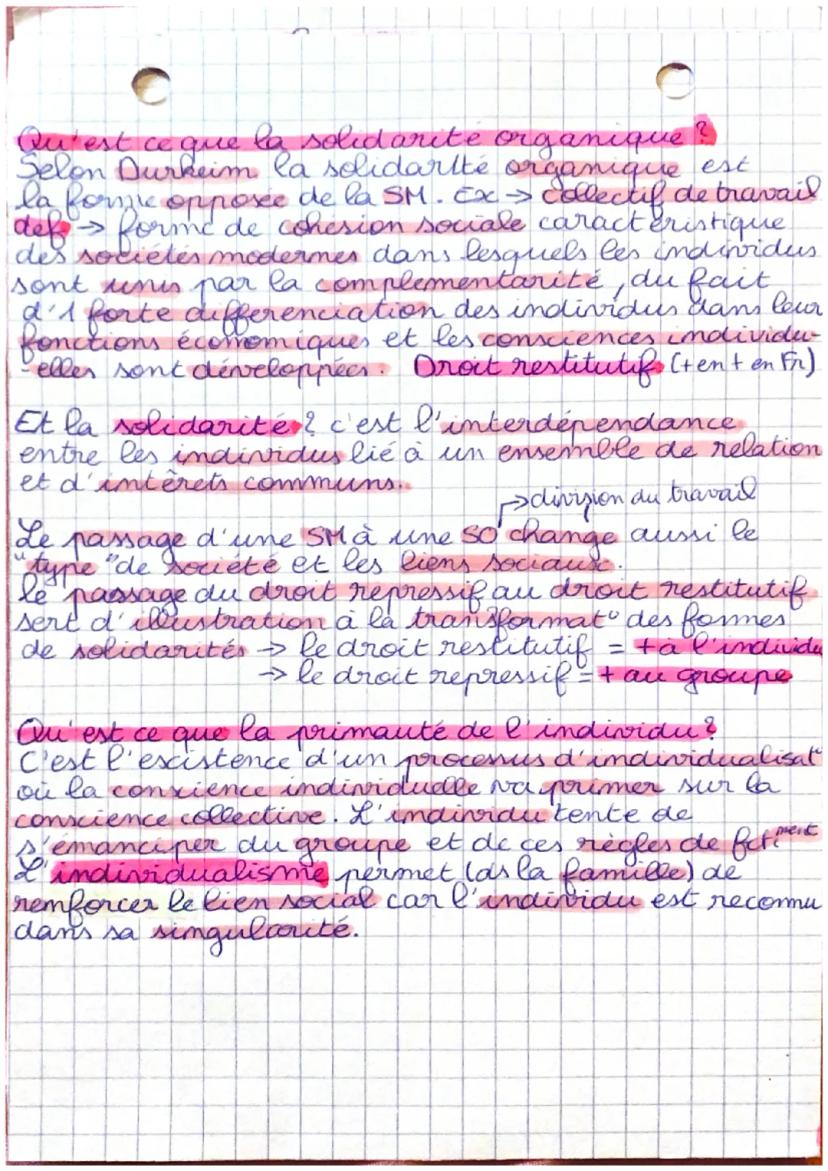 Qu'est ce que la solidarité organique ?
Selon Durkeim la solidarité organique est
la forme opposée de la SM. Ex → collectif de travail
def → forme de cohésion sociale caractéristique
des sociétés modernes dans lesquels les individus
sont unis par la complementarité, du fait
d'1 forte differenciation des individus dans leur
fonctions économiques et les consciences individu-
-elles sont dévéloppées. Droit restitutif (+ en + en Fr)
Et la solidarité ? c'est l'interdépendance
entre les individus lié à un ensemble de relation
et d'intêrets communs.
→ division du travail
Le passage d'une SM à une SO change aussi le
"type" de société et les liens sociaux.
le passage du droit repressif au droit restitutif
sert d'illustration à la transformat° des formes
de solidarités → le droit restitutif = + à l'individu
→ le droit repressif = + au groupe
Qu'est ce que la primauté de l'individu ?
C'est l'existence d'un processus d'individualisat°
où la conscience individuelle va primer sur la
conscience collective. L'individu tente de
s'émanciper du groupe et de ces règles de fctment
L'individualisme permet (ds la famille) de
remforcer le lien social car l'individu est reconnu
dans sa singularité.